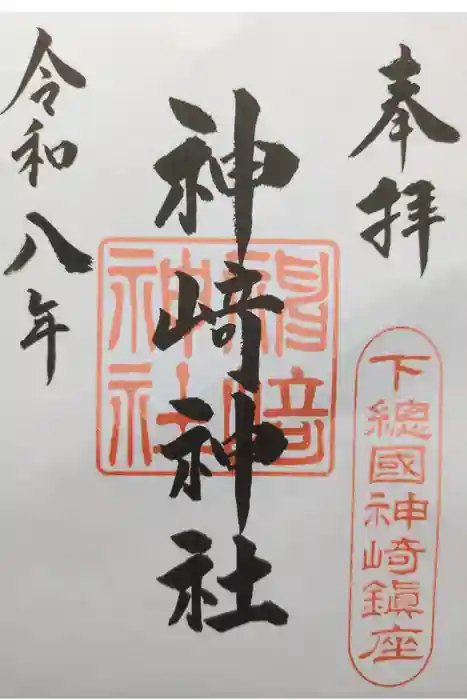 奉拝
下總國神崎鎮座
神崎神社
令和八年